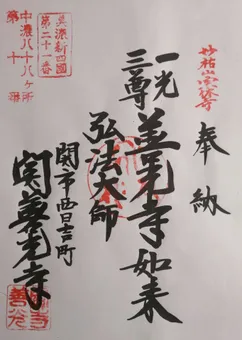 奉納
一光三尊
善光寺如来
弘法大師
関市西日吉町
関善光寺
美濃新四國
第二十一番
中濃八十八ヶ所
第十番
善光寺